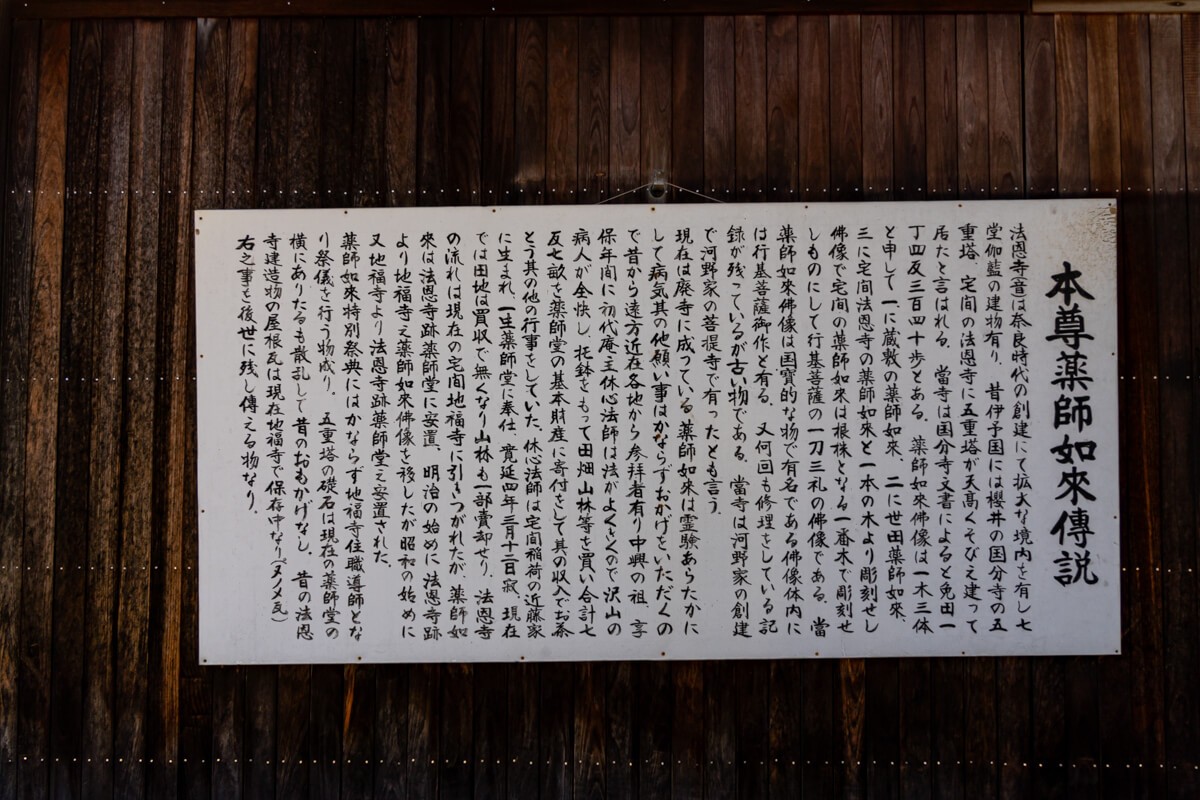 本尊薬師如來傳説
法恩寺音は奈良時代の創建にて拡大な境内を有し七
堂伽藍の建物有り、昔伊予国には櫻井の国分寺の五
重塔、宅間の法恩寺に五重塔が天高くそびえ建って
居たと言はれる。當寺は国分寺文書によると免田一
丁四反三百四十歩とある。薬師如來佛像は一木三体
と申して一に蔵敷の薬師如來、二に世田薬師如來、
三に宅間法恩寺の薬師如來と一本の木より彫刻せし
佛像で宅間の薬師如來は根株となる一番木で彫刻せ
しものにして行基菩薩の一刀三礼の佛像である。當
薬師如來佛像は国寶的な物で有名である佛像体内に
は行基菩薩御作と有る。又何回も修理をしている記
録が残っているが古い物である。當寺は河野家の創建
で河野家の菩提寺で有ったとも言う。
現在は廃寺に成っている。薬師如来は霊験あらたかに
して病気其の他願い事はかならずおかげをいただくの
で昔から遠方近在各地から参拜者有り中興の祖、享
保年間に初代庵主休心法師は法がよくきくので沢山の
病人が全快し、托鉢をもって田畑山林等を買い合計七
反七畝を薬師堂の基本財産に寄付をして其の收入でお茶
とう其の他の行事をしていた。休心法師は宅間稲荷の近藤家
に生まれ、一生薬師堂に奉仕、寛延四年三月十三日寂、現在
では田地は買収で無くなり山林も一部賣却せり。法恩寺
の流れは現在の宅間地福寺に引きつがれたが、薬師如
來は法恩寺跡薬師堂に安置、明治の始めに法恩寺跡
より地福寺え薬師如來佛像を移したが昭和の始めに
又地福寺より法恩寺跡薬師堂え安置された。
薬師如来特別祭典にはかならず地福寺住職導師とな
り祭儀を行う物成り。五重塔の礎石は現在の薬師堂の
横にありたるも散乱して昔のおもかげなし。昔の法恩
寺建造物の屋根瓦は現在地福寺で保存中なり（ヌノメ瓦）
右之事を後世に残し傳える物なり。